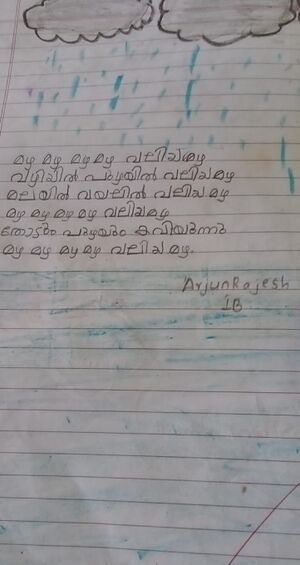 മഴ മഴ മഴ മഴ വലിയമഴ
വഴിയിൽ പുഴയിൽ വലിയമഴ
മലയിൽ വയലിൽ വലിയ മഴ
മഴ മഴ മഴ മഴ വലിയമഴ
തോടും പുഴയും കവിയുന്നു
മഴ മഴ മഴ മഴ വലിയ മഴ.
ArjunRajesh
1B